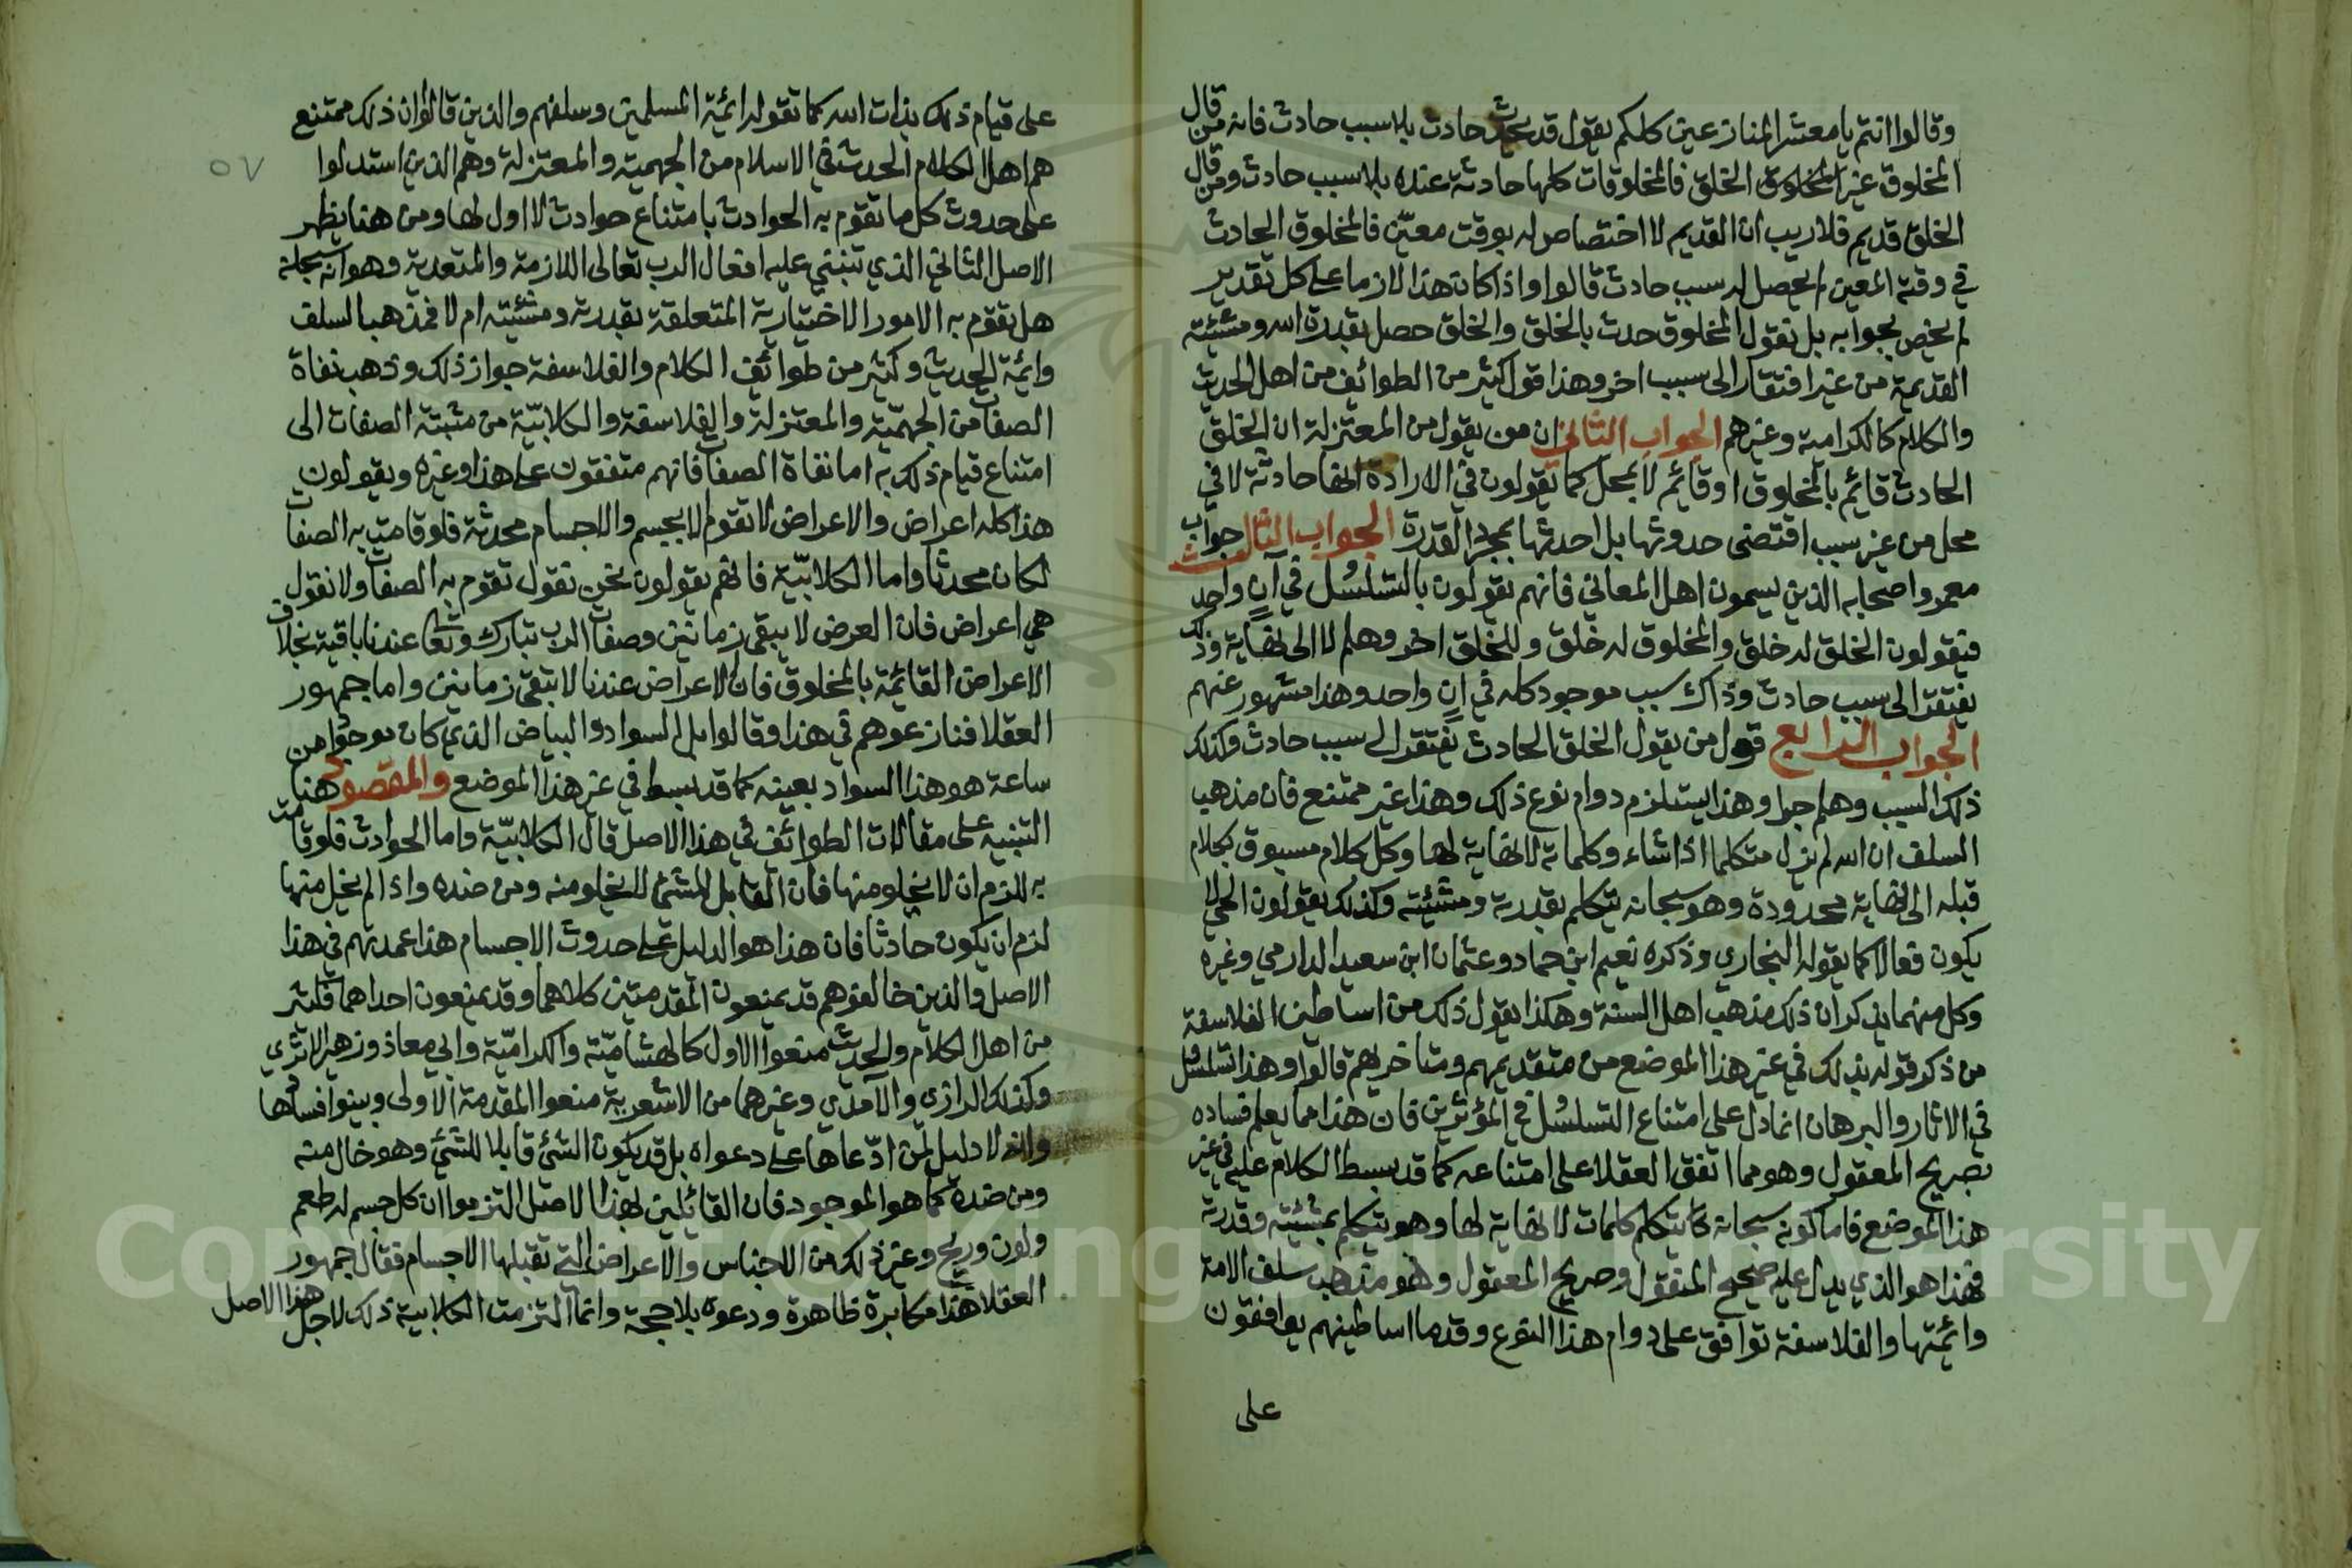 وقالوا انتم يا معشر المنازعين كلكم يقول قد يحدث حادث بلا سبب حادث فانه من قال
المخلوق غير المخلوق الخلق فالمخلوقات كلها حادثة عنده بلا سبب حادث ومن قال
الخلق قديم فلا ريب ان القديم لا اختصاص له بوقت معيّن فالمخلوق الحادث
في وقته المعين لم يحصل له سبب حادث قالوا واذا كان هذا لازما على كل تقدير
لم يخص بجوابه بل نقول المخلوق حدث بالخلق والخلق حصل بقدرة الله ومشئيته
القديمة من غير افتقار الى سبب اخر وهذا قول كثير من الطوائف من اهل الحديث
والكلام كالكرامية وغيرهم الجواب الثاني ان من يقول من المعتزلة ان الخلق
الحادث قائم بالمخلوق او قائم لا بمحل كما يقولون في الارادة انها حادثة لا في
محل من غير سبب اقتضى حدوثها بل احدثها بمجرد القدرة الجواب الثالث جواب
معمر واصحابه الذين يسمون اهل المعاني فانهم يقولون بالتسلسُل في آنٍ واحد
فيقولون الخلق له خلق والمخلوق له خلق وللخلق اخر وهلم لا الى نهاية وذلك
يفتقر الى سبب حادث وذاك سبب موجود كله في انٍ واحد وهذا مشهور عنهم
الجواب الرابع قول من يقول الخلق الحادث يفتقر الى سبب حادث وكذلك
ذلك السبب وهلم جرا وهذا يستلزم دوام نوع ذلك وهذا غير ممتنع فان مذهب
السلف ان الله لم يزل متكلما اذا شاء وكلماته لا نهاية لها وكل كلام مسبوق بكلام
قبله الى نهاية محدودة وهو سبحانه يتكلم بقدرته ومشئيته وكذلك يقولون الحي لا
يكون فعالا كما يقوله البخاري وذكره نعيم ابن حماد وعثمان ابن سعيد الدارمي وغيره
وكل منهما يذكر ان ذلك مذهب اهل السنة وهكذا يقول ذلك من اساطين الفلاسفة
من ذكر قوله بذلك في غير هذا الموضع من متقديمهم ومتاخريهم قالوا وهذا تسلسُل
في الاثار والبرهان انما دل على امتناع التسلسُل في المؤثرين فان هذا مما يعلم فساده
بصريح المعقول وهو مما اتفق العقلا على امتناعه كما قد بسط الكلام عليه في غير
هذا الموضع فاما كونه سبحانه يتكلم كلمات لا نهاية لها وهو يتكلم بمشئيته وقدرته
فهذا هو الذي يدل عليه صحيح المنقول وصريح المعقول وهو مذهب سلف الامة
وائمتها والفلاسفة توافق على دوام هذا النوع وقدما اساطينهم يوافقون
على
٥٧
على قيام ذلك بذات الله كما تقوله ائمة المسلمين وسلفهم والذين قالوا ان ذلك ممتنع
هم اهل الكلام المحدث في الاسلام من الجهمية والمعتزلة وهم الذين استدلوا
على حدوث كل ما تقوم به الحوادث بامتناع حوادث لا اول لها ومن هنا يظهر
الاصل الثاني الذي تنبني عليه افعال الرب تعالى اللازمة والمتعدية وهو انه سبحانه
هل تقوم به الامور الاختيارية المتعلقة بقدرته ومشئيته ام لا فمذهب السلف
وائمة الحديث وكثير من طوائف الكلام والفلاسفة جواز ذلك وذهب نفاة
الصفات من الجهميّة والمعتزلة والفلاسفة والكلابيّة من مثبتة الصفات الى
امتناع قيام ذلك به اما نفاة الصفات فانهم متفقون على هذا وغيره ويقولون
هذا كله اعراض والاعراض لا تقوم الا بجسم والاجسام محدثة فلو قامت به الصفات
لكان محدثا واما الكلابيّة فانهم يقولون نحن نقول تقوم به الصفات ولا نقول
هي اعراض فان العرض لا يبقى زمانين وصفات الرب تبارك وتعالى عندنا باقية بخلاف
الاعراض القائمة بالمخلوق فان الاعراض عندنا لا تبقى زمانين واما جمهور
العقلا فنازعوهم في هذا وقالوا بل السواد والبياض الذي كان موجودا من
ساعة هو هذا السواد بعينه كما قد بسط في غير هذا الموضع والمقصود هنا
التنبيه على مقالات الطوائف في هذا الاصل قال الكلابيّة واما الحوادث فلو قامت
به للزم ان لا يخلو منها فان القابل للشئ لا يخلو منه ومن ضده واذا لم يخل منها
لزم ان يكون حادثا فان هذا هو الدليل على حدوث الاجسام هذا عمدتهم في هذا
الاصل والذين خالفوهم قد يمنعون المقدمتين كلاهما وقد يمنعون احداهما فكثير
من اهل الكلام والحديث منعوا الاول كالهشاميّة والكراميّة وابي معاذ وزهير الاثري
وكذلك الرازي والآمدي وغيرهما من الاشعرية منعوا المقدمة الاولى وبينوا فسادها
وانه لا دليل لمن ادّعاها على دعواه بل قد يكون الشئ قابلا للشئ وهو خال منه
ومن ضده كما هو الموجود فان القائلين بهذا الاصل التزموا ان كل جسم له طعم
ولون وريح وغير ذلك من الاجناس والاعراض التي تقبلها الاجسام فقال جمهور
العقلا هذا مكابرة ظاهرة ودعوى بلا حجة وانما التزمت الكلابية ذلك لاجل هذا الاصل